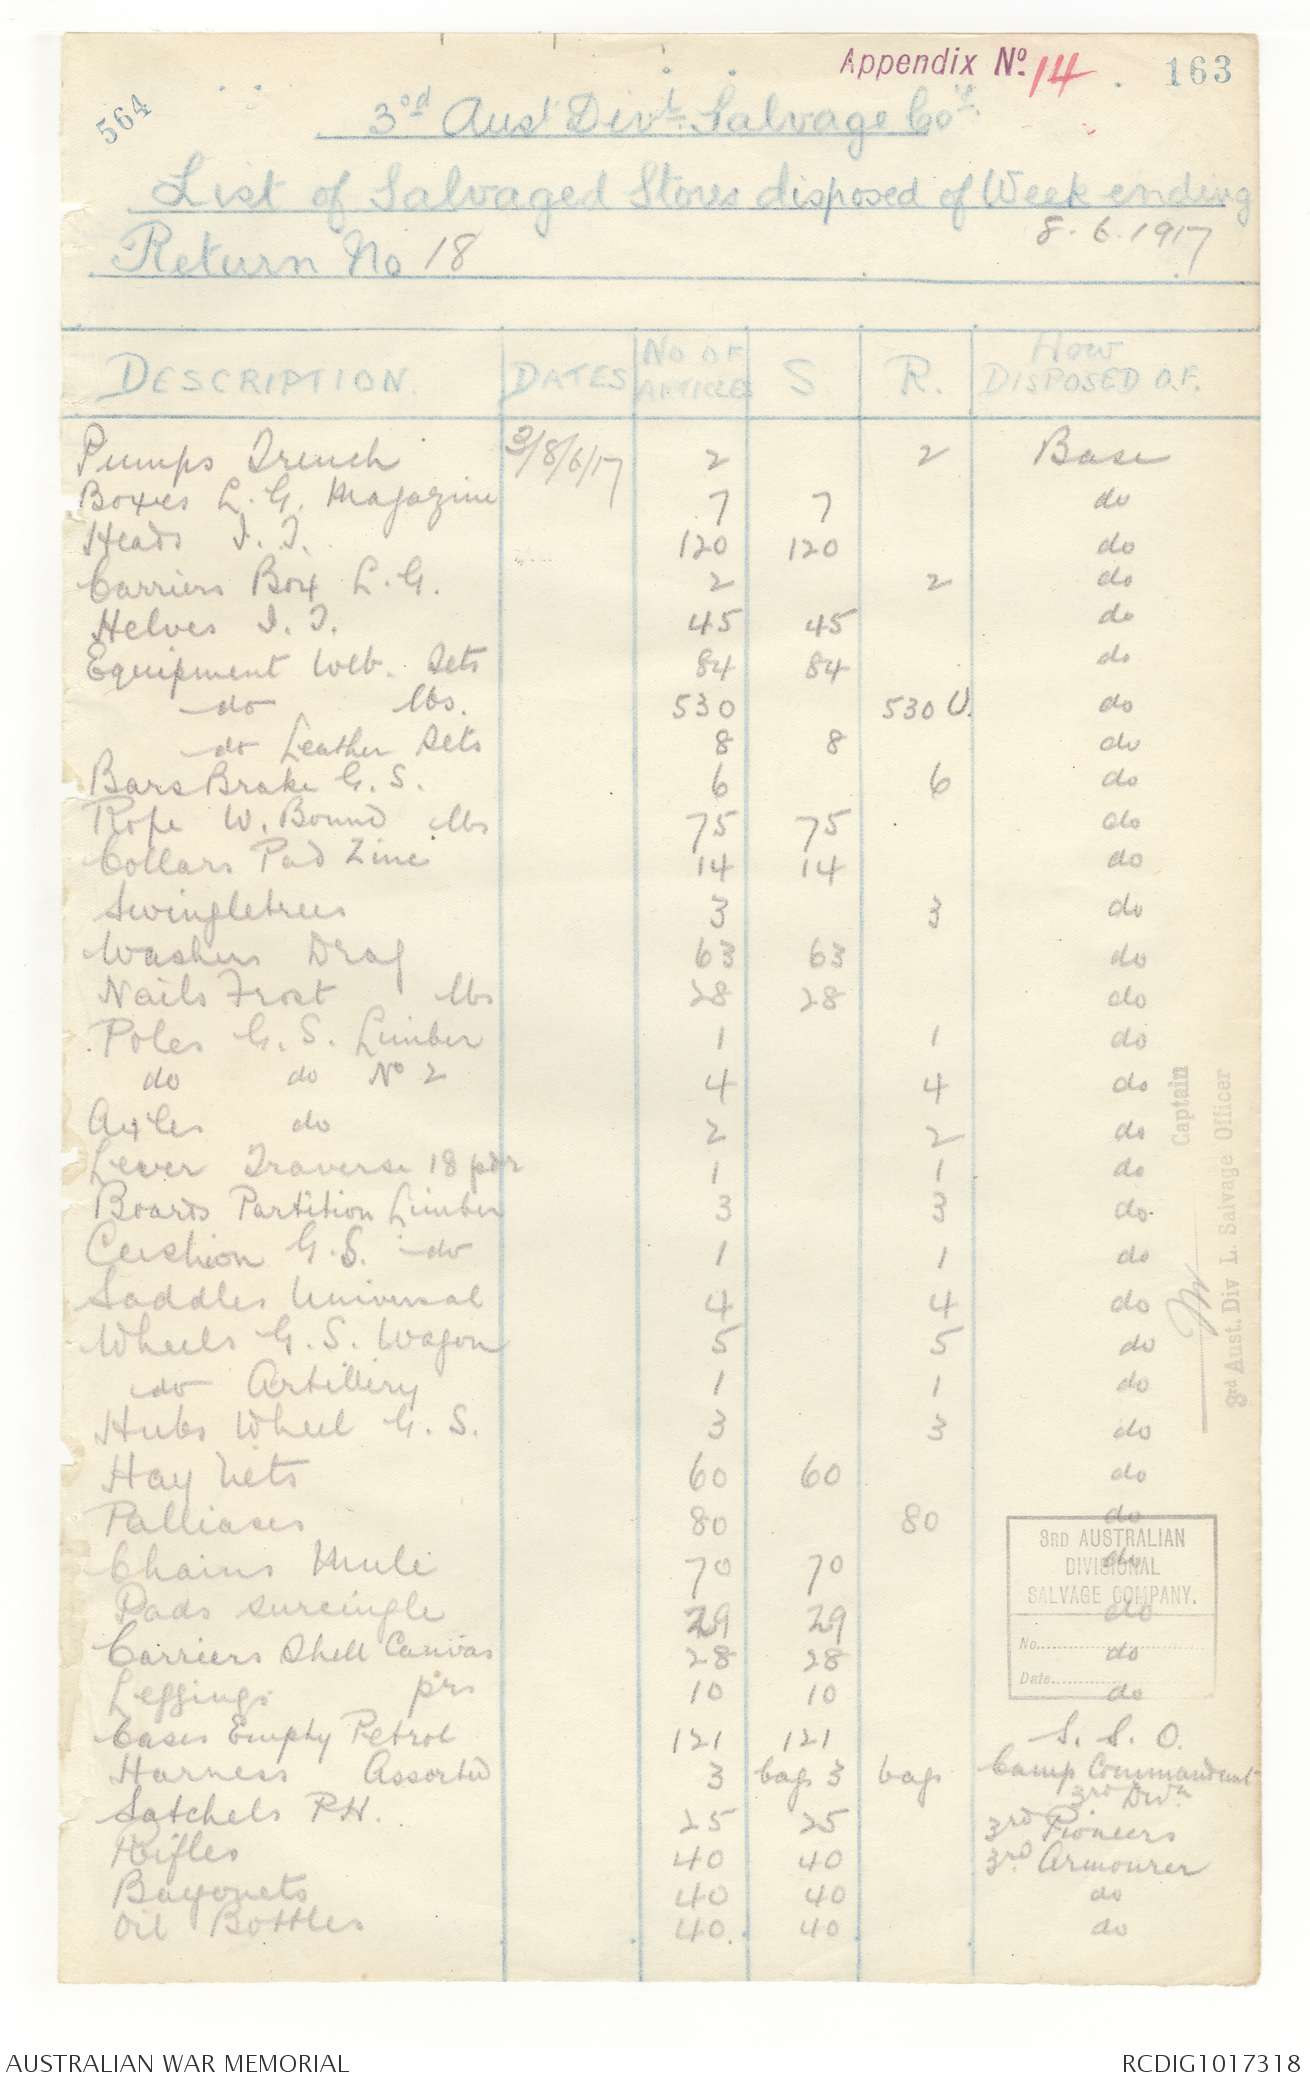 Appendix No. 14 . 163
564
3rd Aust Divl. Salvage Coy.
List of Salvaged Stores disposed of Week ending
8.6.1917
Return No 18
DESCRIPTION. DATES No OF ARTICLES S. R. How DISPOSED OF.
Pumps Trench 2/8/6/17 2 2 Base
Boxes L.G. Magazine 7 7 do
Heads I.T. 120 120 do
Carriers Box L.G. 2 2 do
Helves I.T. 45 45 do
Equipment Web. Sets 84 84 do
do lbs. 530 530 U. do
do Leather Sets 8 8 do
Bars Brake G.S. 6 6 do
Rope W. Bound lbs 75 75 do
Collars Pad Zinc 14 14 do
Swingletrees 3 3 do
Washers Drag 63 63 do
Nails Frost lbs 28 28 do
Poles G.S. Limber 1 1 do
do do No 2 4 4 do
Axles do 2 2 do
Lever Traverse 18 pdr 1 1 do
Boards Partition Limber 3 3 do.
Cushion G.S. do 1 1 do
Saddles Universal 4 4 do
Wheels G.S. Wagon 5 5 do
do Artillery 1 1 do
Hubs Wheel G.S. 3 3 do
Hay Nets 60 60 do
Palliases 80 80 do
Chains Mule 70 70 do
Pads surcingle 29 29 do
Carriers Shell Canvas 28 28 do
Leggings prs 10 10 do
Cases Empty Petrol 121 121 S.S.O.
Harness Assorted 3 bags 3 bags Camp Commandant
3rd Divn.
Satchels P.H. 25 25 3rd Pioneers
Rifles 40 40 3rd Armourer
Bayonets 40 40 do
Oil Bottles 40. 40 do
Captain
3rd Aust. Div L. Salvage Officer
3RD AUSTRALIAN
DIVISIONAL
SALVAGE COMPANY.
No.
Date.
AUSTRALIAN WAR MEMORIAL RCDIG1017318